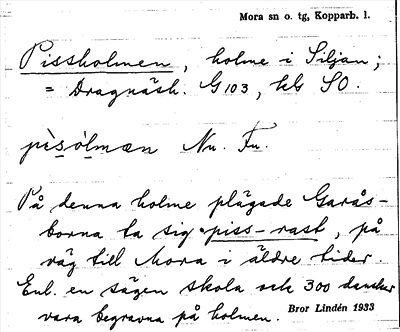 Mora sn o. tg, Kopparb. l.
Pissholmen, holme i Siljan;
= Dragnäsh. G 103, hb SO.
pìsòlmæn Nu. Fu.
På denna holme plägade Garås-
borna ta sig "piss-rast, på
väg till Mora i äldre tider.
Enl. en sägen skola ock 300 danskar
vara begravna på holmen. Bror Lindén 1933